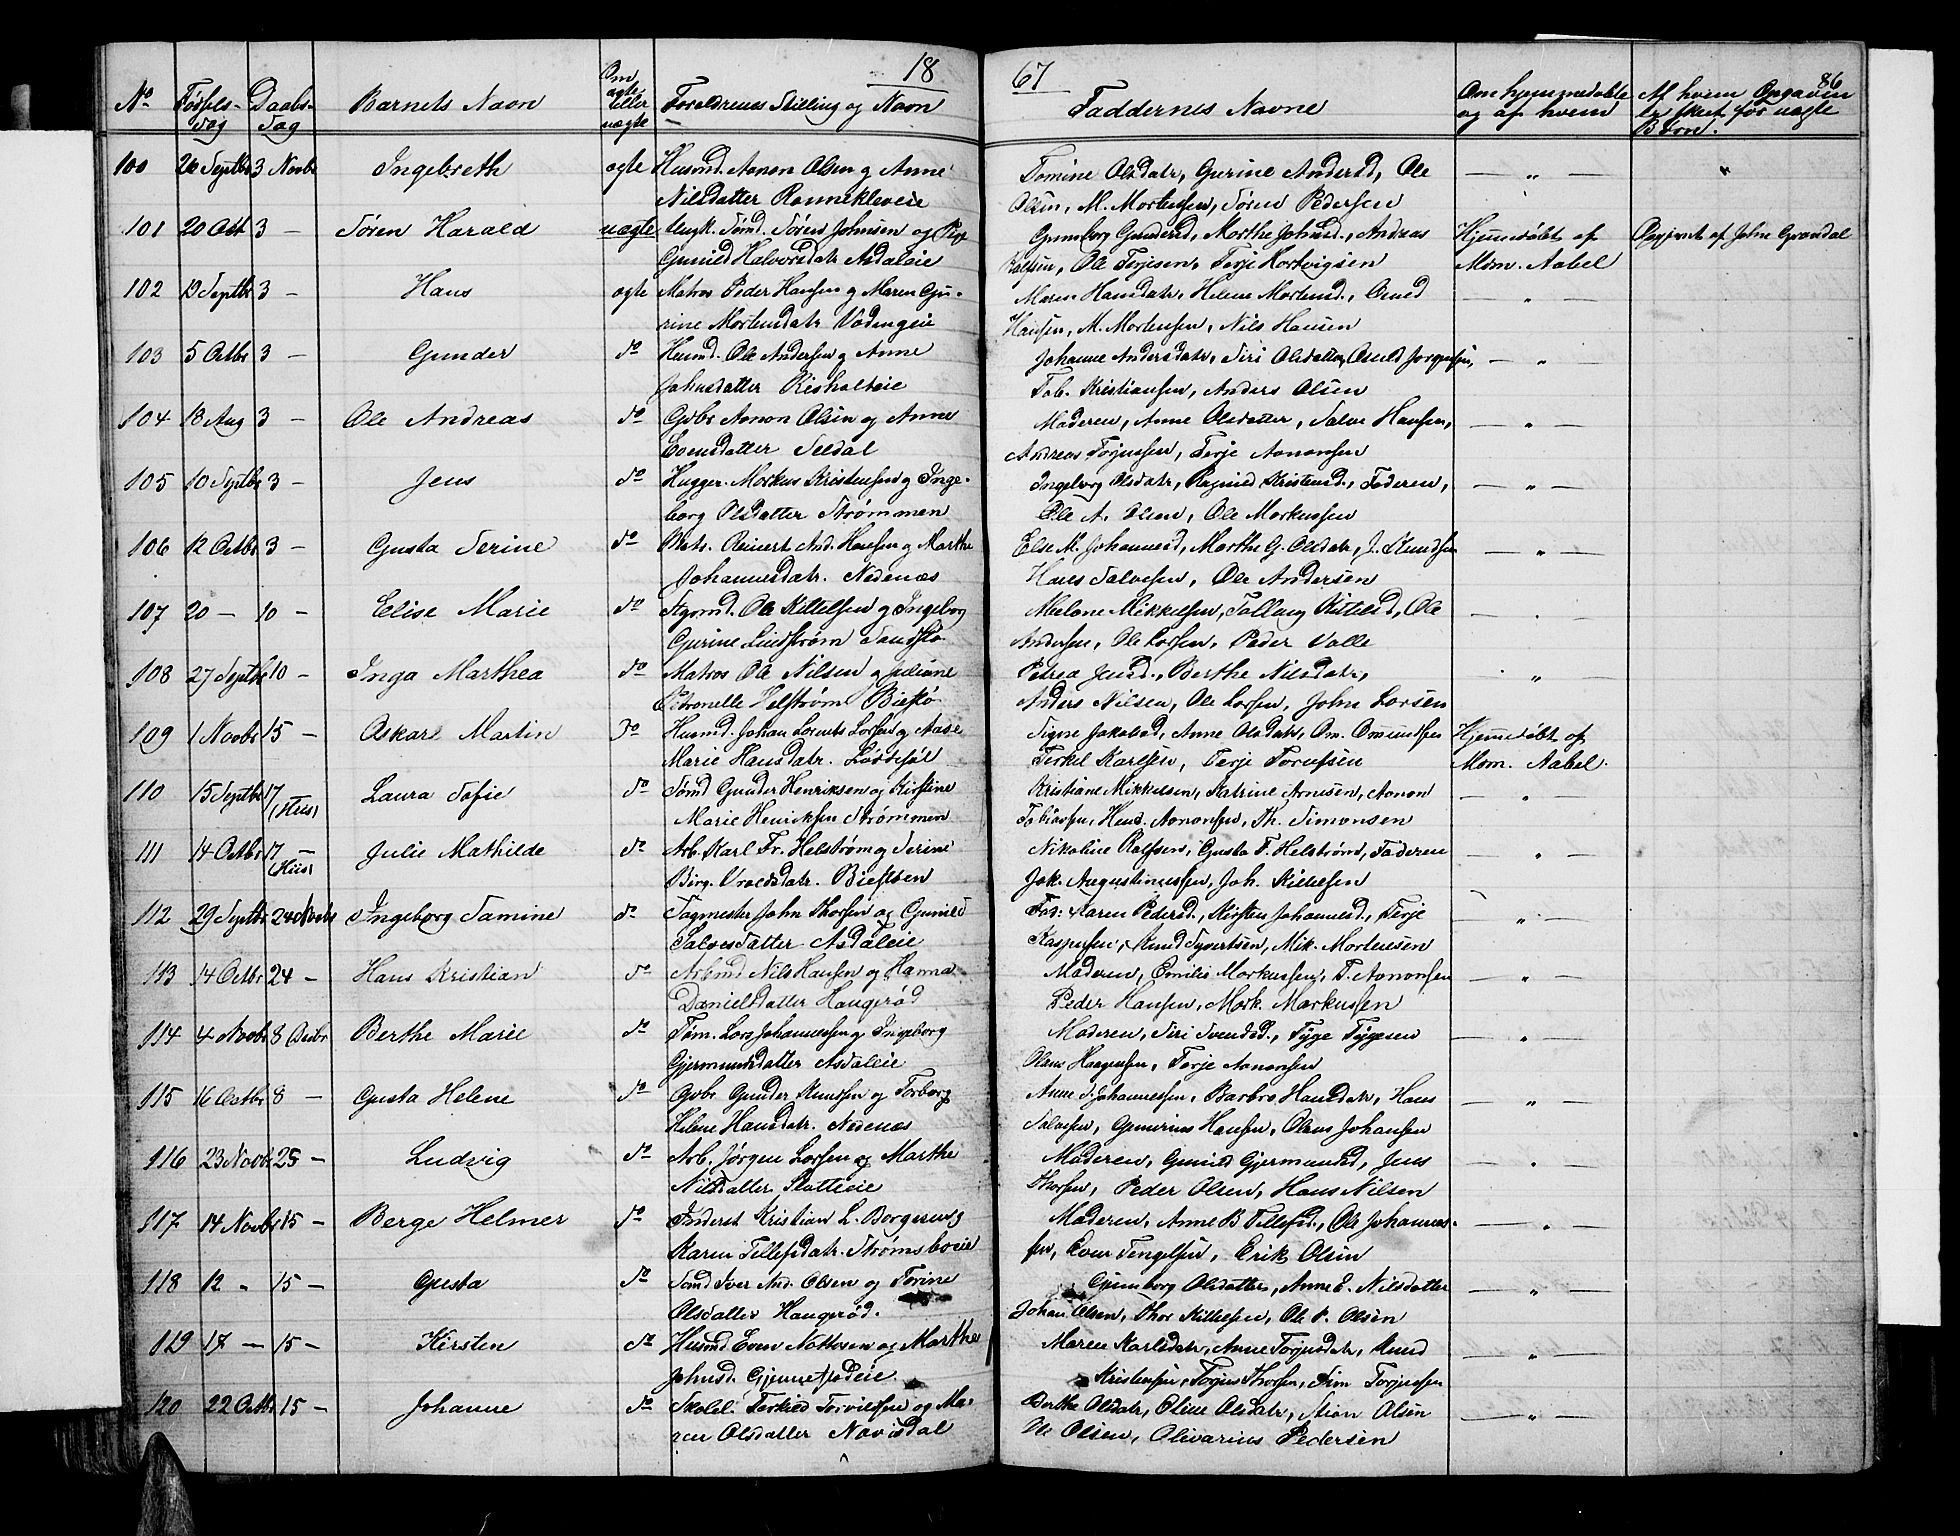 18
67
86
No
Fødsels-
dag
Daabs-
dag
Barnets Navn
Om
ægte
eller
uægte
Forældrenes Stilling og Navn
Faddernes Navne
Om hjemmedøbte
og af hvem
Af hvem Opgaven
er skeet for uægte
Børn.
100 20 Septbr 3 Novbr Ingebreth ægte Husmd. Aanon Olsen og Anne Tomine Olsdatr, Gurine Andersd, Ole — „ — „
Nilsdatter Rønnekleveie Olsen, M. Mortensen, Søren Pedersen
101 20 Oct 3 — Søren Harald uægte Ungk. Sømd. Søren Johnsen og Pige Gunnborg Gundersd, Marthe Johnsd., Andreas Hjemmedøbt af Opgivet af John Grændal
Gunild Halvorsdatr Asdaleie Ole Terjesen, Terje Hartvigsen Mom. Aabel
102 19 Septbr 3 — Hans ægte Matros Peder Hansen og Maren Gu- Maren Hansdatr, Helene Mortensd., Amed — „ —
rine Mortensdatr Vødingeie Hansen, M. Mortensen, Nils Hansen
103 5 Octbr 3 — Gunder do Husmd. Ole Andersen og Anne Johanne Andersdatr, Siri Olsdatter, Jørgensen, — „ —
Johnsdatter Risholteie Tob. Kristiansen, Anders Olsen
104 18 Aug 3 — Ole Andreas do Gdbr Aanon Olsen og Anne Moderen, Anne Olsdatter, Salve Hansen, — „ —
Evensdatter Seldal Andreas Torjussen, Terje Aanonsen
105 10 Septbr 3 — Jens do Hugger. Markus Kristensen og Inge- Ingeborg Olsdatr, Ragnild Kristensd., Faderen, — „ —
borg Olsdatter Strømmen Ole A. Olsen, Ole Markussen
106 12 Octbr 3 — Gusta Serine do Matr. Reinert And. Hansen og Marthe Else M. Johannesd, Marthe G. Olsdatr, J. Knudsen — „ —
Johannesdatr. Nedenæs Hans Salvesen, Ole Andersen
107 20 — 10 — Elise Marie do Styrmd. Ole Kittelsen og Ingeborg Malene Mikkelsen, Tallaug Kittelsd, Ole — . —
Gurine Lindstrøm Sandstø Andersen, Ole Larsen, Peder Valle
108 27 Septbr 10 — Inga Marthea do Matros Ole Nilsen og Juliane Petrea Jensd., Berthe Nilsdatr, „ —
Petronelle Helstrøm Biestø Anders Nilsen, Ole Larsen, John Larsen
109 1 Novbr 15 — Oskar Martin do Husmd. Johan Lorents Larsen og Aase Signe Jakobsd, Anne Olsdatr, Om. Omundsen Hjemmedøbt af
Marie Hansdatr. Løddesøl Terkel Karlsen, Terje Mom. Aabel.
110 15 Septbr 17 — Laura Sofie do Sømd Gunder Henriksen og Kirstine Kristiane Mikkelsen, Katrine Arnesen, Aanon — „ —
(Hiis) Marie Henriksen Strømmen Tobiassen, Hend. Aanonsen, Th. Simonsen
111 14 Octbr 17 — Julie Mathilde do Arb. Karl Fr. Helstrøm og Serine Nikoline Ralfsen, Gusta F. Helstrøm, Faderen — „ —
(Hiis) Birg. Vraldsdatr. Biestøen Jak. Augustinussen, Joh. Kittelsen
112 29 Septbr 24 Novbr Ingeborg Samine do Tagmester John Thorsen og Gunild Karen Pedersd., Kirsten Johannesd., Terje — „ —
Salvesdatter Asdaleie Kaspersen, Knud Syvertsen, Mik. Mortensen
113 14 Octbr 24 — Hans Kristian do Arbmd Nils Hansen og Hanna Moderen, Emilie Markussen, T. Aanonsen — „ —
Danielsdatter Haugerød Peder Hansen, Mark. Markussen
114 4 Novbr 8 Decbr Berthe Marie do Tøm. Lars Johannessen og Ingeborg Moderen, Siri Svendsd., Tyge Tygesen — „ —
Gjermundsdatter Asdaleie Olaus Haagensen, Terje Aanonsen
115 16 Octbr 8 — Gusta Helene do Gdbr Gunder Knudsen og Torborg Anne S. Johannessen, Barbro Hansdatr, Hans — „ —
Helene Hansdatr. Nedenæs Salvesen, Gunerius Hansen, Olaus Johansen
116 23 Novbr 25 — Ludvig do Arb. Jørgen Larsen og Marthe Moderen, Gunild Gjermundsd, Jens — „ —
Nilsdatter Slotteeie Thorsen, Peder Olsen, Hans Nilsen
117 14 Novbr 15 — Berge Helmer do Inderst Kristian L. Borgersen og Moderen, Anne B Tellefsd., Ole Johannes- — „ —
Karen Tellefsdatr. Strømsboeie sen, Even Tengelsen, Erik Olsen
118 12 „ 15 — Gusta do Sømd Iver And. Olsen og Torine Gunnborg Olsdatter, Anne E. Nilsdatter — „ —
Olsdatter Haugerød. Johan Olsen, Thor Kittelsen, Ole P. Olsen
119 17 — 15 — Kirsten do Husmd Even Nattesen og Marthe Maren Karlsdatr, Anne Torjusdatr, Knud — „ —
Johnsd. Kristensen, Torjus Thorsen, Sim Torjussen
120 22 Octbr 15 — Johanne do Skolel. Terkild Torvildsen og Ma- Berthe Olsdatr, Oline Olsdatr, Aion Olsen — „ —
ren Olsdatter Novisdal Ole Olsen, Olivarius Pedersen